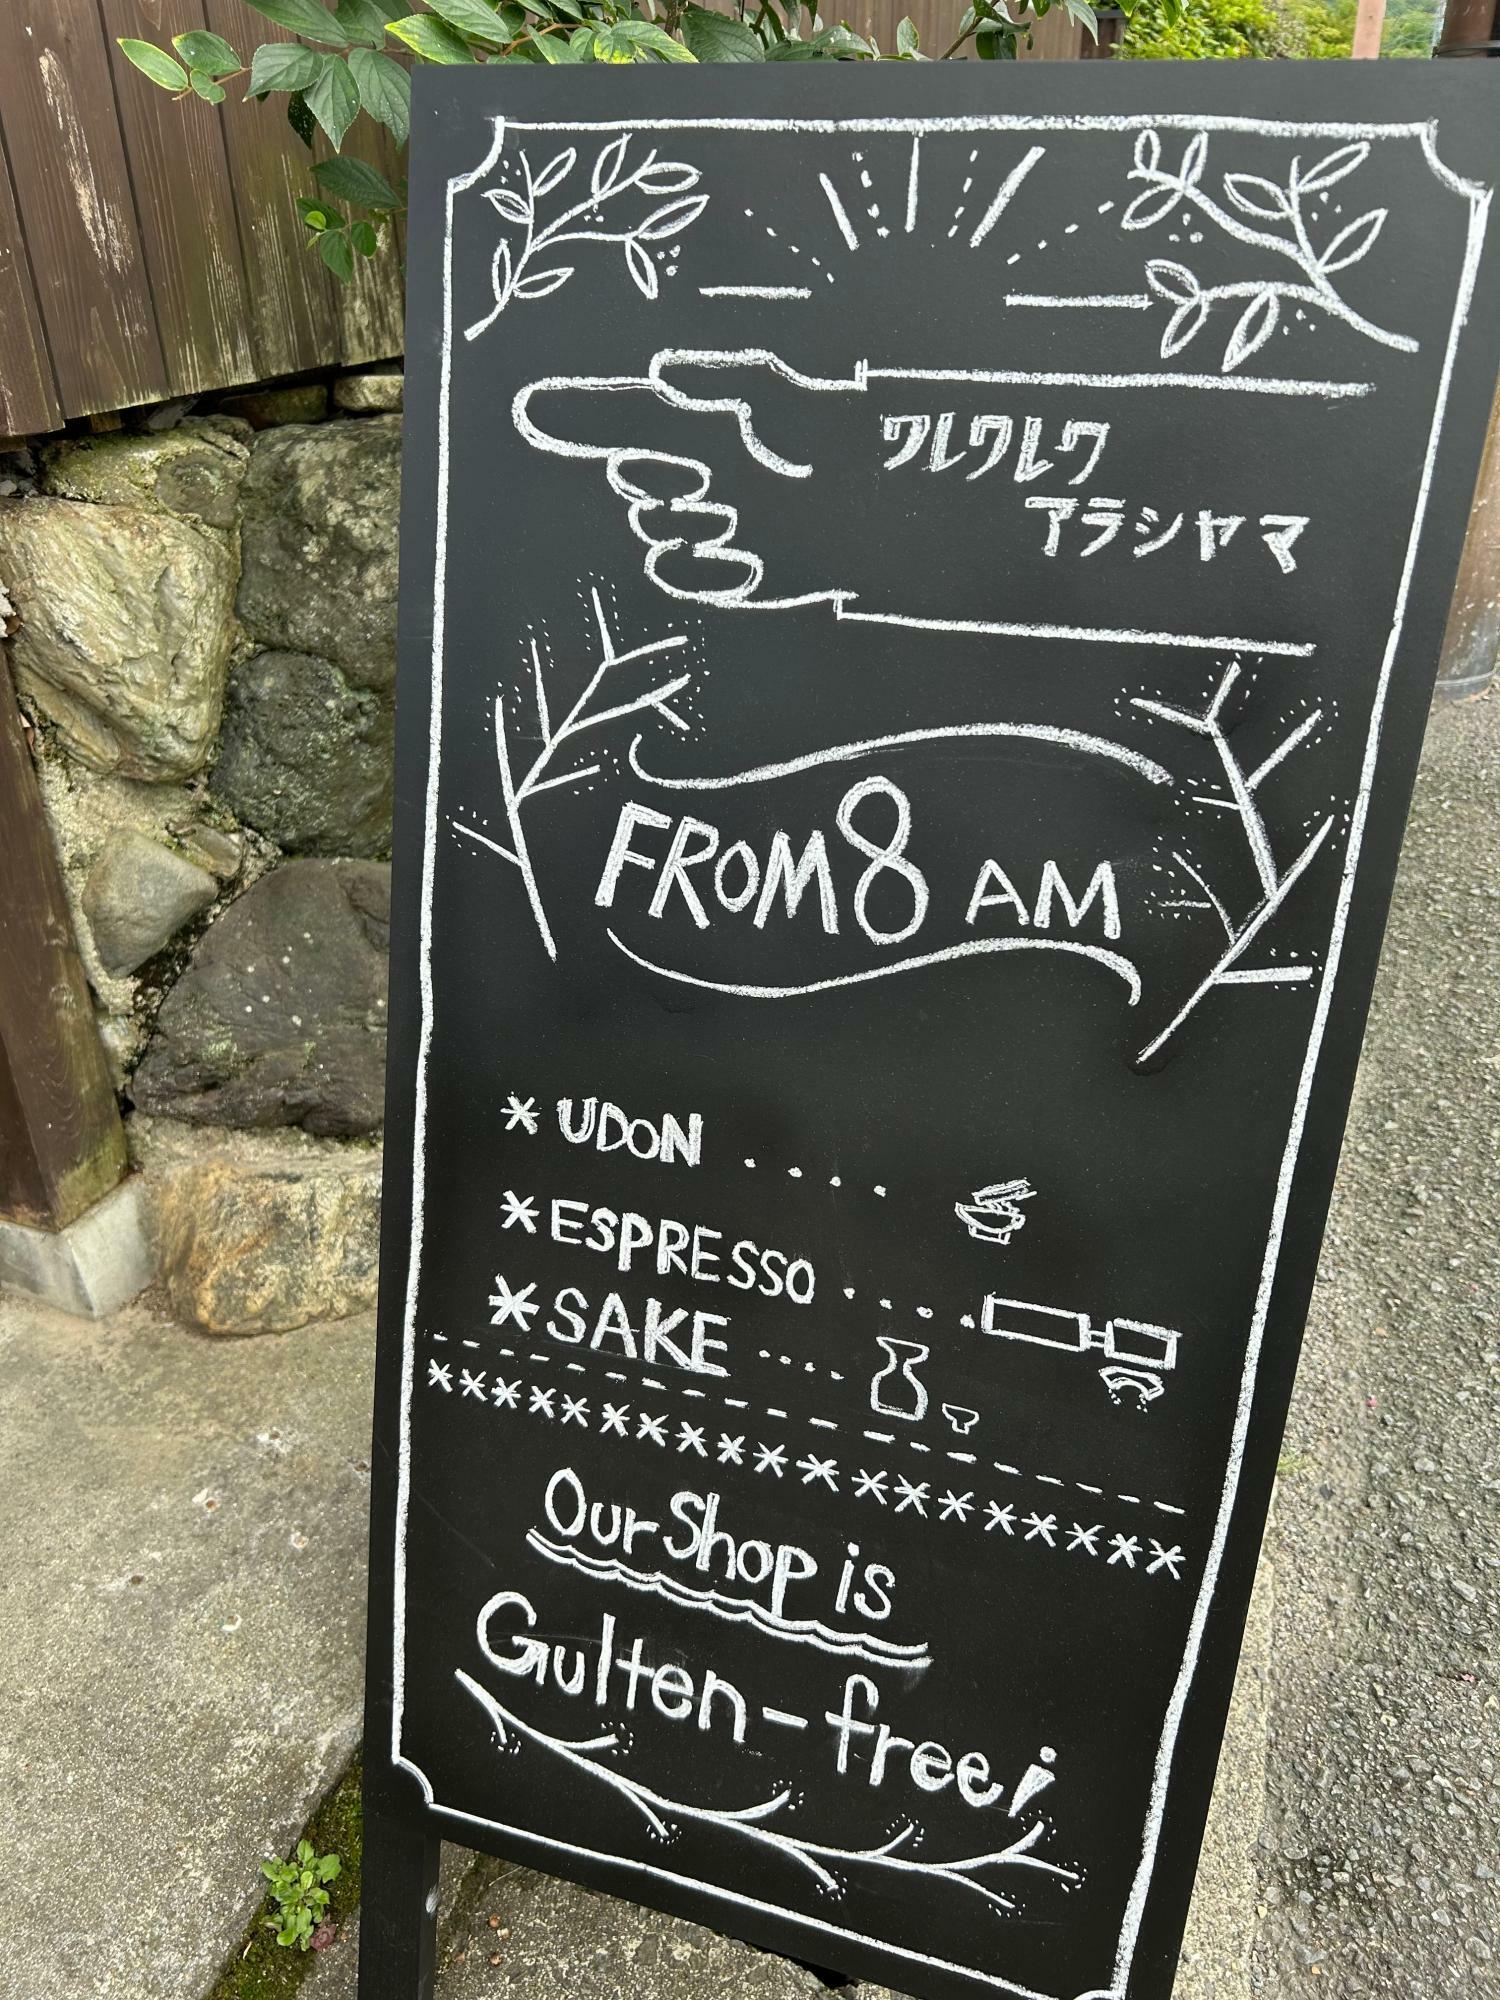 ワレワレワ
アラシヤマ
FROM 8 AM
* UDON ....
* ESPRESSO .....
* SAKE ....
*******************
Our Shop is
Gulten-free!